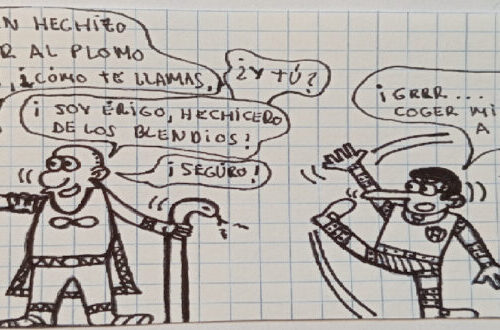 N HECHIZO
R AL PLOMO
¿CÓMO TE LLAMAS,
¿Y TÚ?
¡SOY ÉRIGO, HECHICERO
DE LOS BLENDIOS!
¡SEGURO!
¡GRRR...
COGER MI
A